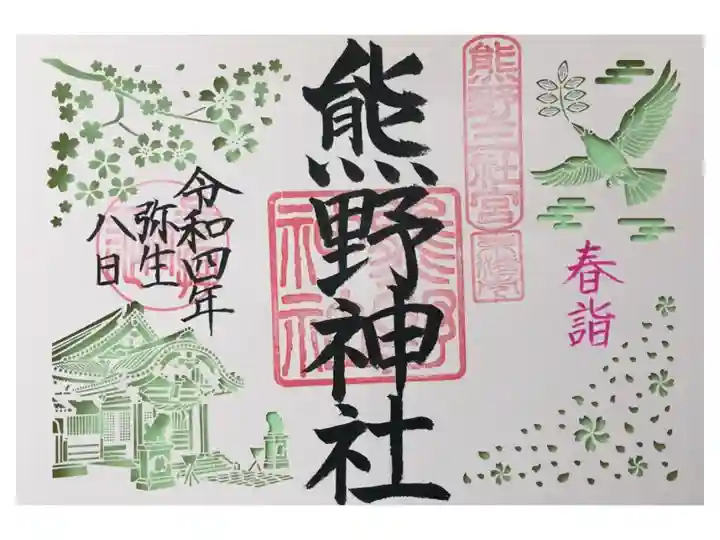 春詣
熊野三社宮
熊野神社
熊野神社
令和四年
弥生
八日